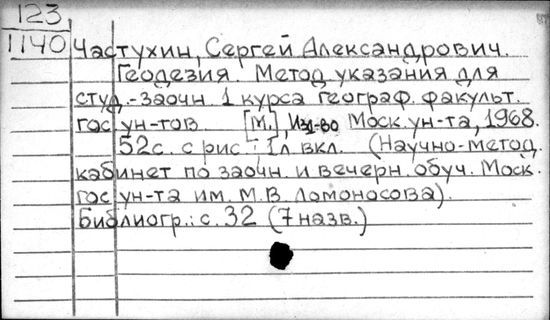 123
1140
Частухин, Сергей Александрович.
Геодезия. Метод указания для
студ.-заочн. 1 курса географ. факульт.
гос ун-тов [М.], Изд-во Моск. ун-та, 1968.
52с. с рис.; 1л вкл. (Научно-метод.
кабинет по заочн. и вечерн. обуч. Моск.
гос ун-та им. М.В. Ломоносова).
Библиогр.: с. 32 (7 назв.)